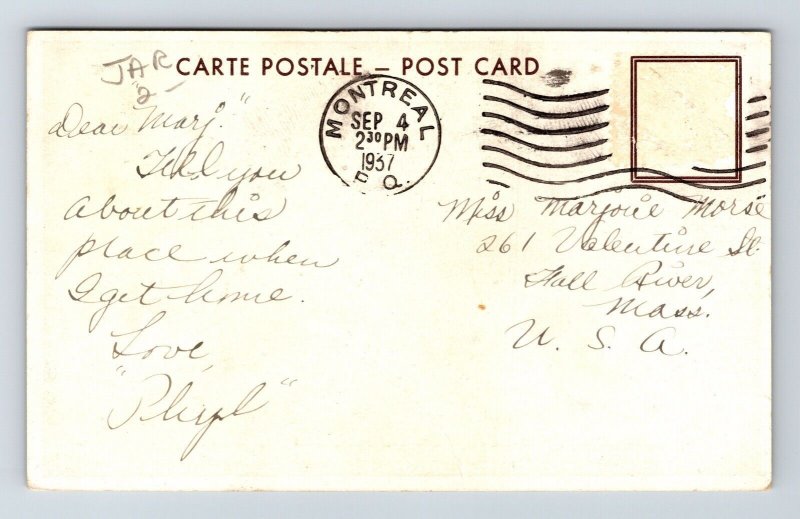 JAR
2-
CARTE POSTALE – POST CARD
MONTREAL
SEP 4
2 30 PM
1937
P. Q.
Dear Marj."
Tell you
about this
place when
I get home.
Love,
"Phyl"
Miss Marjorie Morse
261 Valentine St.
Fall River,
Mass.
U. S. A.